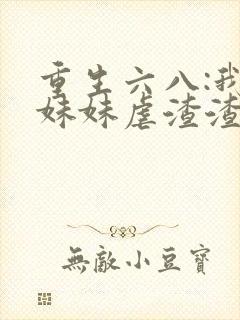 重生六八:我
妹妹虐渣渣
無敵小豆寶